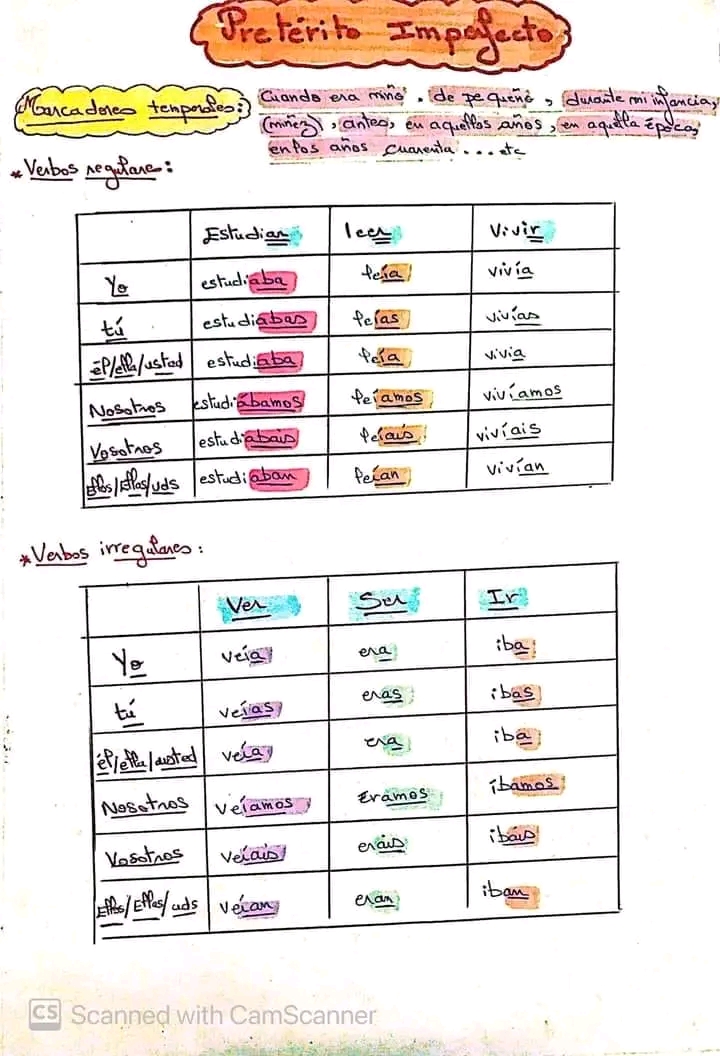 Pretérito Imperfecto
Marcadores temporales:
Cuando era niño, de pequeño, durante mi infancia,
(niñez), antes, en aquellos años, en aquella época,
en los años cuarenta ... etc
* Verbos regulares:
Estudiar leer Vivir
Yo estudiaba leía vivía
tú estudiabas leías vivías
él/ella/usted estudiaba leía vivía
Nosotros estudiábamos leíamos vivíamos
Vosotros estudiabais leíais vivíais
Ellos/Ellas/uds estudiaban leían vivían
* Verbos irregulares:
Ver Ser Ir
Yo veía era iba
tú veías eras ibas
él/ella/usted veía era iba
Nosotros veíamos Eramos íbamos
Vosotros veíais erais ibáis
Ellos/Ellas/uds veían eran iban
CS Scanned with CamScanner